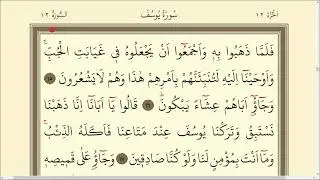 الجزء ١٢ سورة يوسف السورة ١٢
فَلَمَّا ذَهَبُوا بِهِ وَاَجْمَعُٓوا اَنْ يَجْعَلُوهُ فٖى غَيَابَتِ الْجُبِّ
وَاَوْحَيْنَٓا اِلَيْهِ لَتُنَبِّئَنَّهُمْ بِاَمْرِهِمْ هٰذَا وَهُمْ لَا يَشْعُرُونَ ١٥
وَجَٓاؤُٓ اَبَاهُمْ عِشَٓاءً يَبْكُونَ ١٦ قَالُوا يَٓا اَبَانَٓا اِنَّا ذَهَبْنَا
نَسْتَبِقُ وَتَرَكْنَا يُوسُفَ عِنْدَ مَتَاعِنَا فَاَكَلَهُ الذِّئْبُ
وَمَٓا اَنْتَ بِمُؤْمِنٍ لَنَا وَلَوْ كُنَّا صَادِقٖينَ ١٧ وَجَٓاؤُ عَلٰى قَمٖيصِهٖ